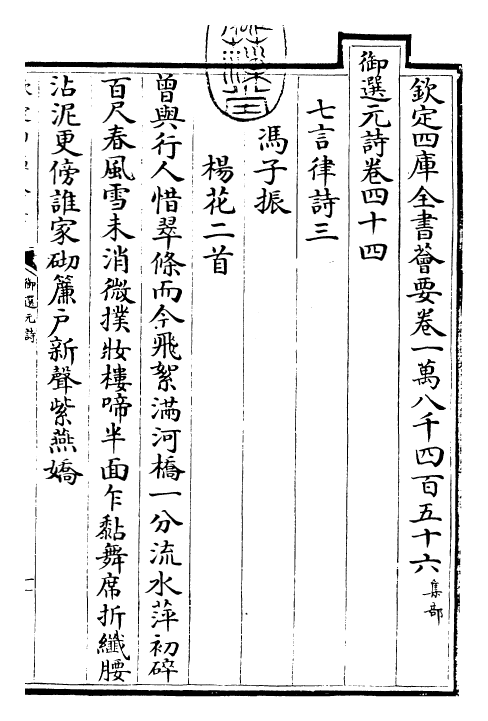 欽定四庫全書薈要卷一萬八千四百五十六集部
御選元詩卷四十四
七言律詩三
馮子振
楊花二首
曾與行人惜翠條而今飛絮滿河橋一分流水萍初碎
百尺春風雪未消微撲妝樓啼半面乍黏舞席折纖腰
沾泥更傍誰家砌簾戶新聲紫燕嬌
御選元詩
一